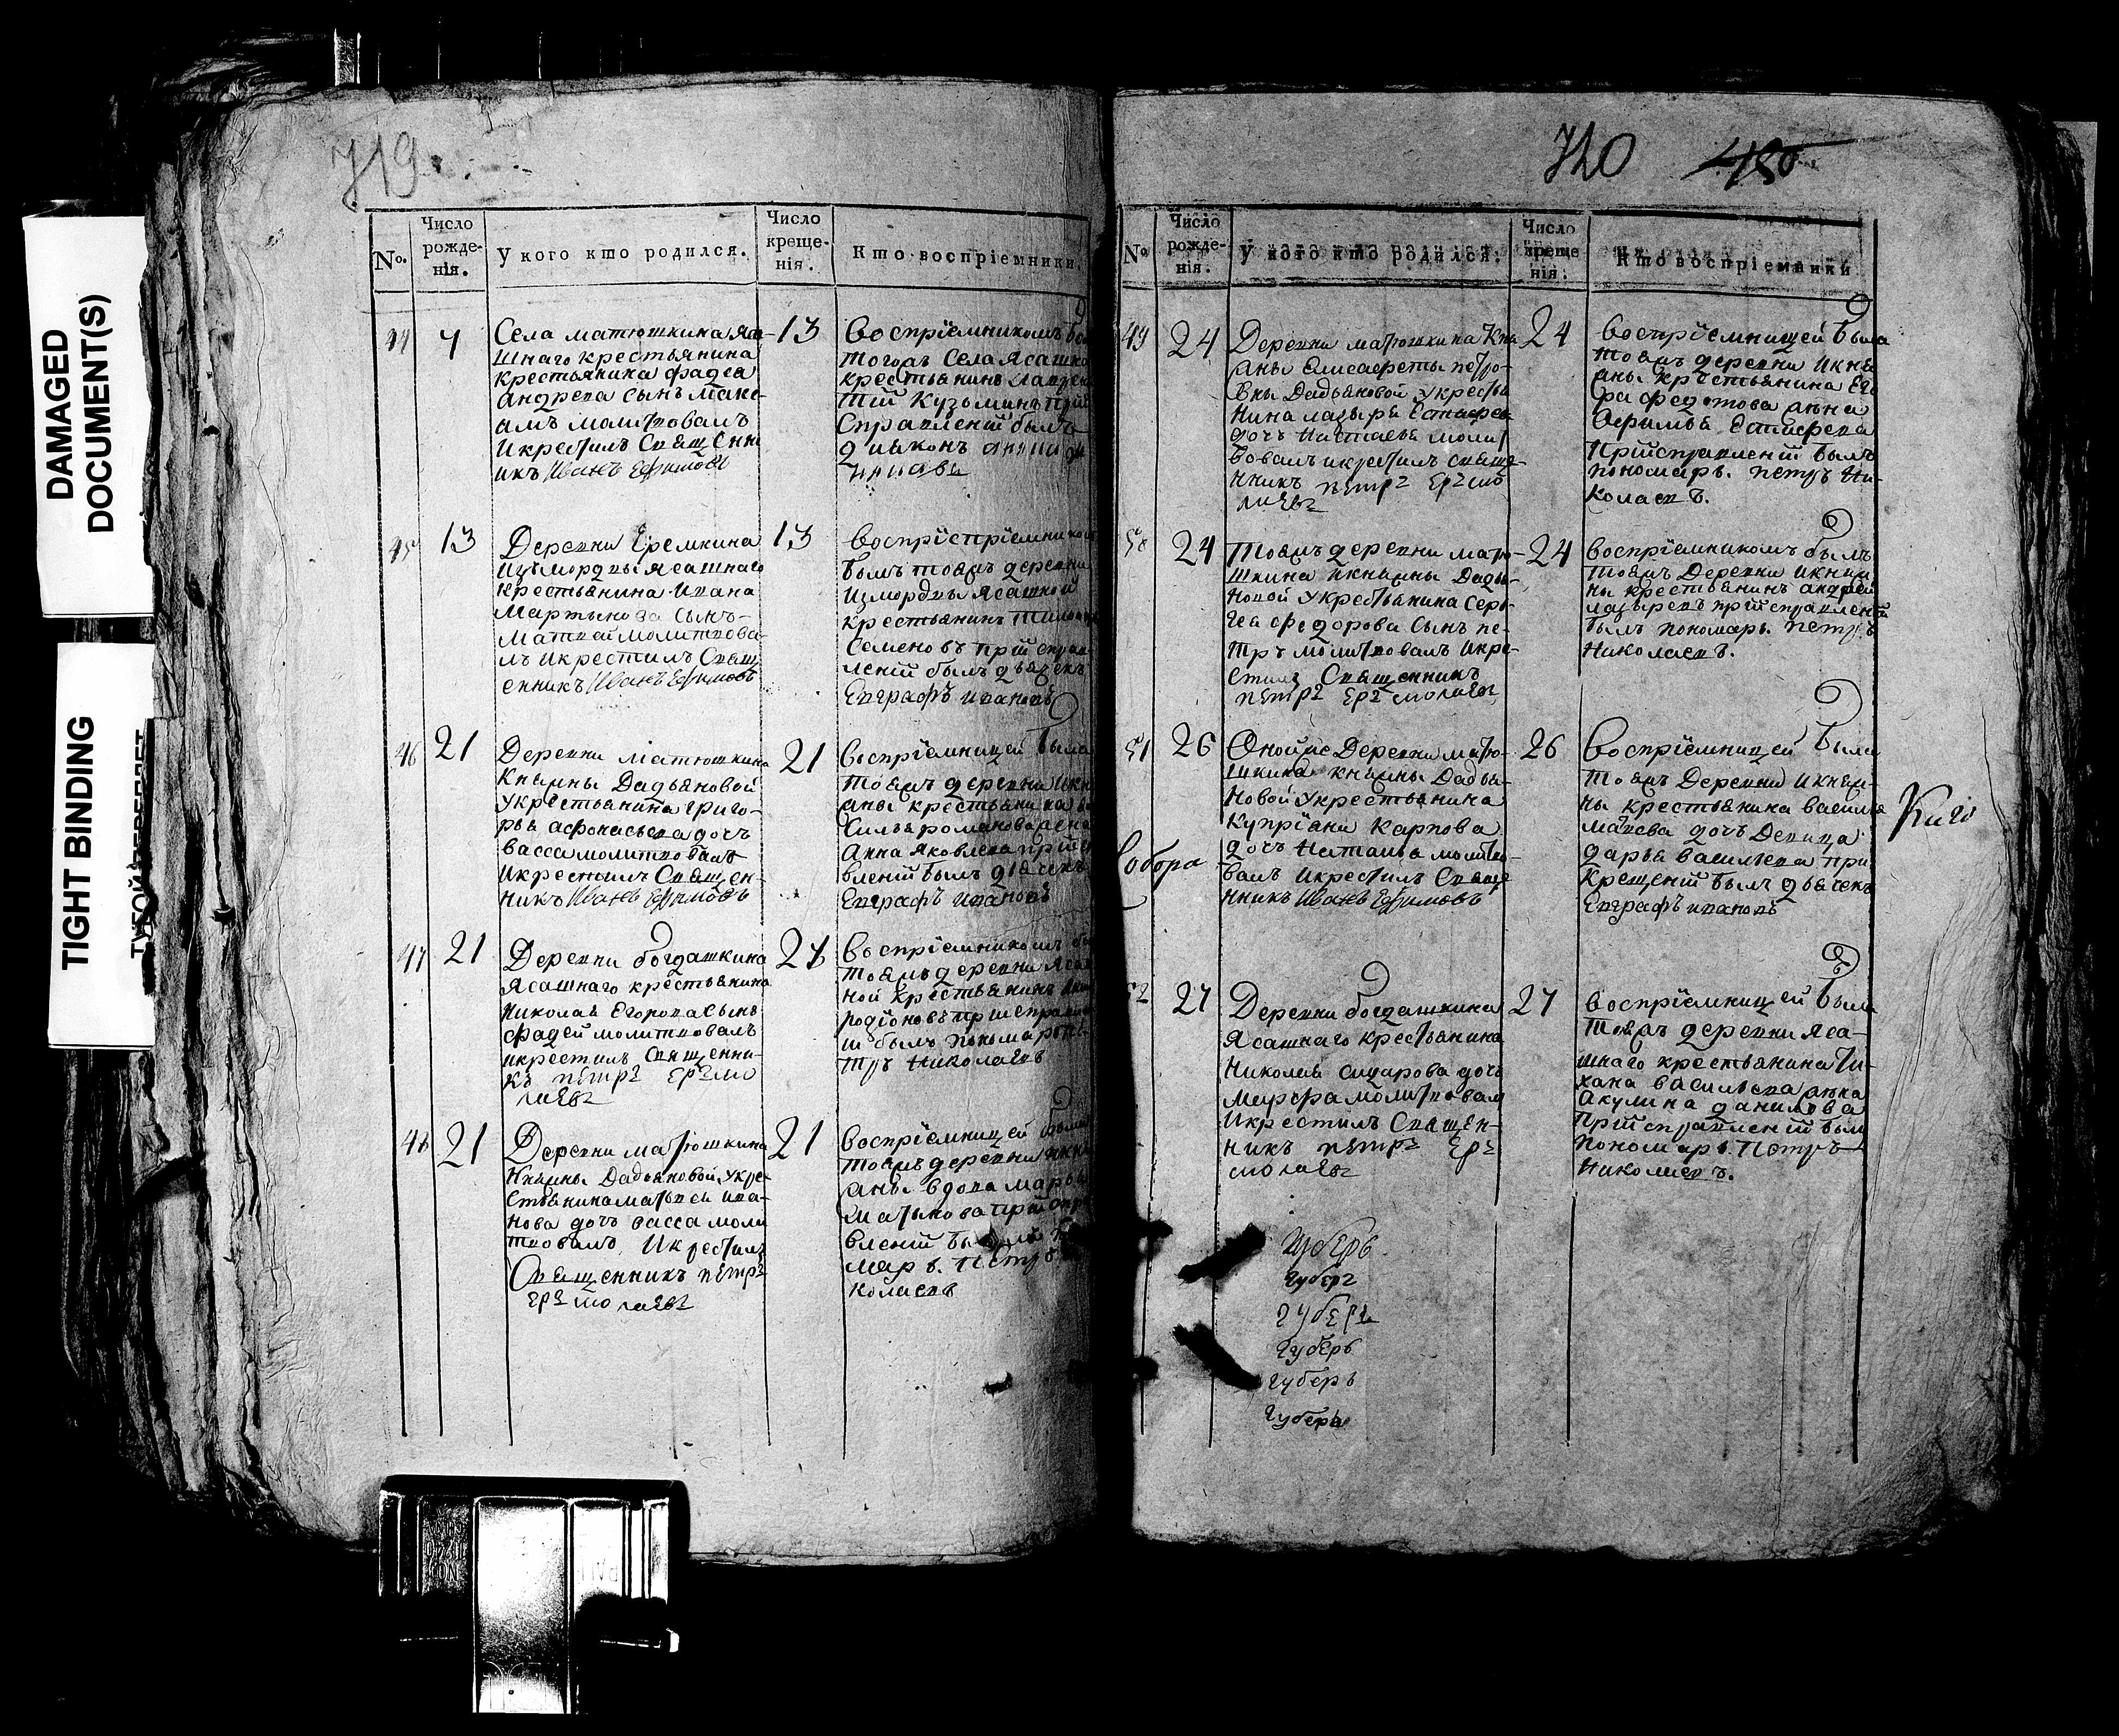 719
DAMAGED
DOCUMENT(S)
TIGHT BINDING
№.
Число рожде- нія.
У кого кто родился.
Число креще- нія.
Кто воспріемники.
44
13
Села матюшкина яса-
шнаго крестьянина
крестьянина фадеа
андреева сынъ макс-
имъ молитвовалъ
икрестилъ Священн
икъ Иванъ Ефимовъ
воспріемникомъ
тогожъ Села Ясашно
крестьянинъ
тій Кузьминъ при
Справленіи былъ
діаконъ
45
13
13
Деревни Еремкина
измордвы ясашнаго
крестьянина Ивана
Мартынова сынъ
Матвей молитвова-
лъ Икрестилъ Свящ
енникъ Иванъ Ефимовъ
былъ тояжъ деревни
измордвы ясашной
крестьянинъ
семеновъ прїи справ
леніи былъ дьячекъ
Евграфъ ивановъ
46
21
21
Деревни матюшкина
Княжны Дадьяновой
укрестьянина григо-
рья афонасьева дочь
васса молитвовалъ
Икрестилъ Священ-
никъ Иванъ Ефимовъ
воспріемницей была
тояжъ деревни Икн
яны крестьянина ва
силья романова жена
Анна Яковлева при сп
вленіи былъ дьячекъ
Евграфъ ивановъ
47
21
21
Деревни богдашкина
Ясашнаго крестьянина
Николая Егорова сынъ
фадей молитвовалъ
икрестилъ Священни-
къ петръ Ермо
лаевъ
воспріемникомъ бы
тояжъ деревни Яса
ной крестьянинъ
родіоновъ при справле
и былъ пономарь пе
тръ Николаевъ
48
21
21
Деревни матюшкина
Княжны Дадьяновой укре-
стьянина матвея ива-
нова дочь васса моли
твовалъ Икрестилъ
Священникъ петръ
Ермолаевъ
воспріемницей была
тояжъ деревни икн
яны вдова марья
вленіи былъ
марь. Петръ
колаевъ
720
480
№
Число рожде- нія.
У кого кто родился.
Число креще нія.
Кто воспріемники
49
24
24
Деревни матюшкина Кня
аны Елисафеты петро-
вны Дадьяновой укрестья
нина лазыря Естафева
дочь Настасья молит
вовалъ икрестилъ свяще-
нникъ петръ Ермо
лаевъ
воспріемницей была
тояжъ деревни Икня
аны крестьянина Его
ра федотова жена
Афимья Естафева
Прїисправленіи былъ
пономарь. петръ Ни-
колаевъ.
50
24
24
тояжъ деревни матю-
шкина икняжны Дадья-
новой укрестьянина серь-
гея федорова сынъ пе-
тръ молитвовалъ икре-
стилъ Священникъ
петръ Ермолаевъ
воспріемникомъ былъ
тояжъ Деревни икняж-
ны крестьянинъ андрей
лазыревъ прїисправленіи
былъ пономарь. петръ
Николаевъ.
51
26
26
Оной же Деревни матю-
шкина княжны Дадья-
новой укрестьянина
купріяна карпова
дочь Наталья молитво-
валъ икрестилъ Свяще
нникъ Иванъ Ефимовъ
воспріемницей была
тояжъ Деревни икняж-
ны крестьянина василья
дочь Девица
дарья васильева при
крещеніи былъ дьячекъ
Евграфъ ивановъ
Собора
52
27
27
Деревни богдашкина
Ясашнаго крестьянина
Николая дочь
марфа молитвовалъ
Икрестилъ Священ-
никъ петръ Ер
молаевъ
воспріемницей была
тояжъ деревни Яса-
шнаго крестьянина ти-
хана васильева жена
Акулина данилова
Прїисправленіи былъ
пономарь. Петръ
Николаевъ.
Губерь
губерь
губерь
губерь
губерь
губерь